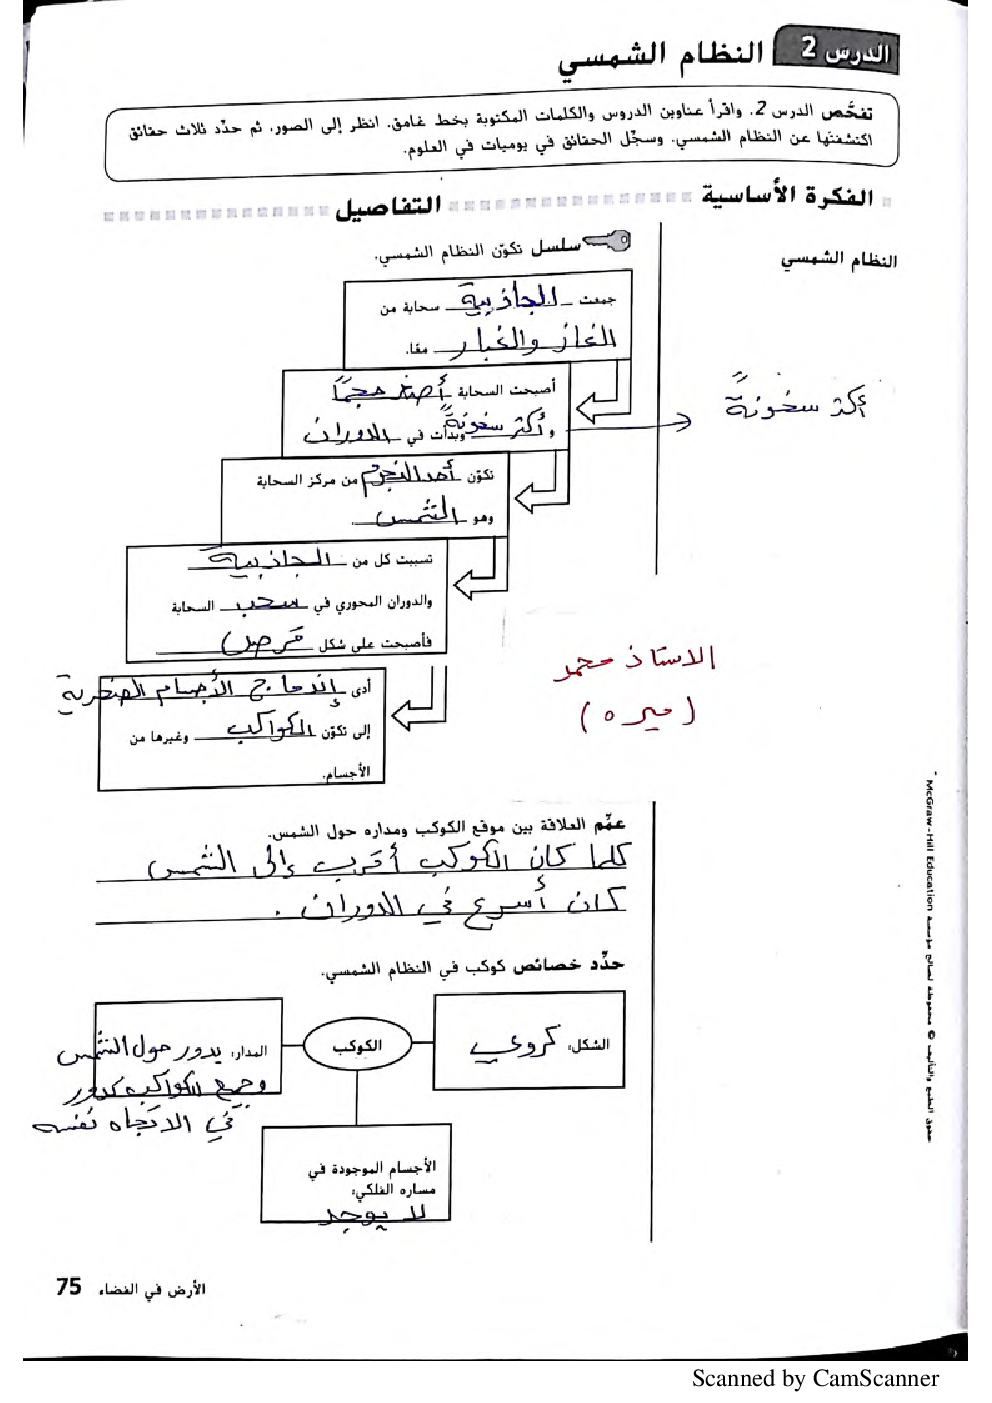 الدرس 2 النظام الشمسي
تفحَّص الدرس 2. واقرأ عناوين الدروس والكلمات المكتوبة بخط غامق. انظر إلى الصور. ثم حدّد ثلاث حقائق
اكتشفتها عن النظام الشمسي. وسجّل الحقائق في يوميات في العلوم.
الفكرة الأساسية
التفاصيل
النظام الشمسي
سلسل تكوّن النظام الشمسي.
جمعت الجاذبية سحابة من
الغاز والغبار معًا.
أصبحت السحابة أصغر حجمًا
وأكثر سخونةً وبدأت في الدوران
أكثر سخونةً
تكوّن أحد النجوم من مركز السحابة
وهو الشمس
تسببت كل من الجاذبية
والدوران المحوري في سحب السحابة
فأصبحت على شكل قرص
أدى إندماج الأجسام الصخرية
إلى تكوّن الكواكب وغيرها من
الأجسام.
الاستاذ محمد
(ميره)
عمّم العلاقة بين موقع الكوكب ومداره حول الشمس.
كلما كان الكوكب أقرب إلى الشمس
كان أسرع في الدوران.
حدّد خصائص كوكب في النظام الشمسي.
الشكل: كروي
الكوكب
المدار: يدور حول الشمس
وجميع الكواكب تدور
في الاتجاه نفسه
الأجسام الموجودة في
مساره الفلكي:
لا يوجد
حقوق الطبع والتأليف © محفوظة لصالح مؤسسة McGraw-Hill Education
الأرض في الفضاء 75
Scanned by CamScanner